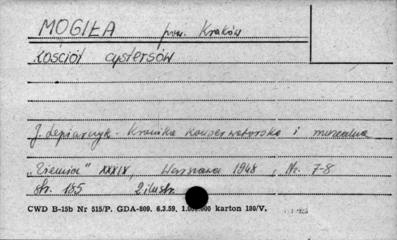 MOGIŁA pow. Kraków
Kościół cystersów
J. Lepiarczyk - Kronika konserwatorska i muzealna
"Ziemia" XXXIX, Warszawa 1948, Nr. 7-8
str. 185 2 ilustr.
CWD B-15b Nr 515/P. GDA-809. 6.3.59. karton 180/V.